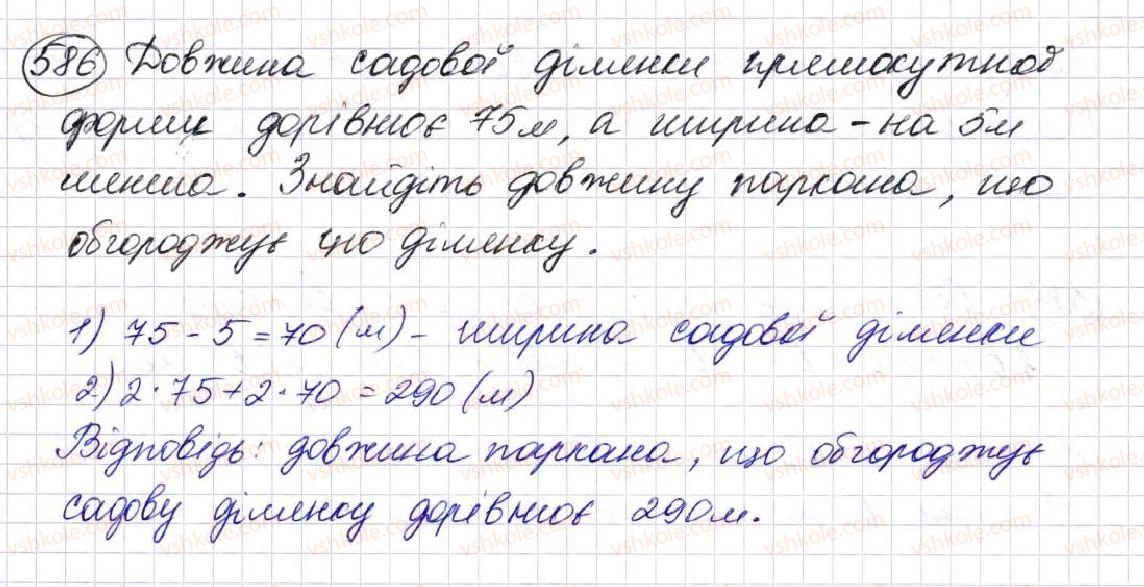 586 Довжина садової ділянки прямокутної
форми дорівнює 75м, а ширина - на 5м
менша. Знайдіть довжину паркана, що
обгороджує цю ділянку.
1) 75 - 5 = 70 (м) - ширина садової ділянки
2) 2 · 75 + 2 · 70 = 290 (м)
Відповідь: довжина паркана, що обгороджує
садову ділянку дорівнює 290м.